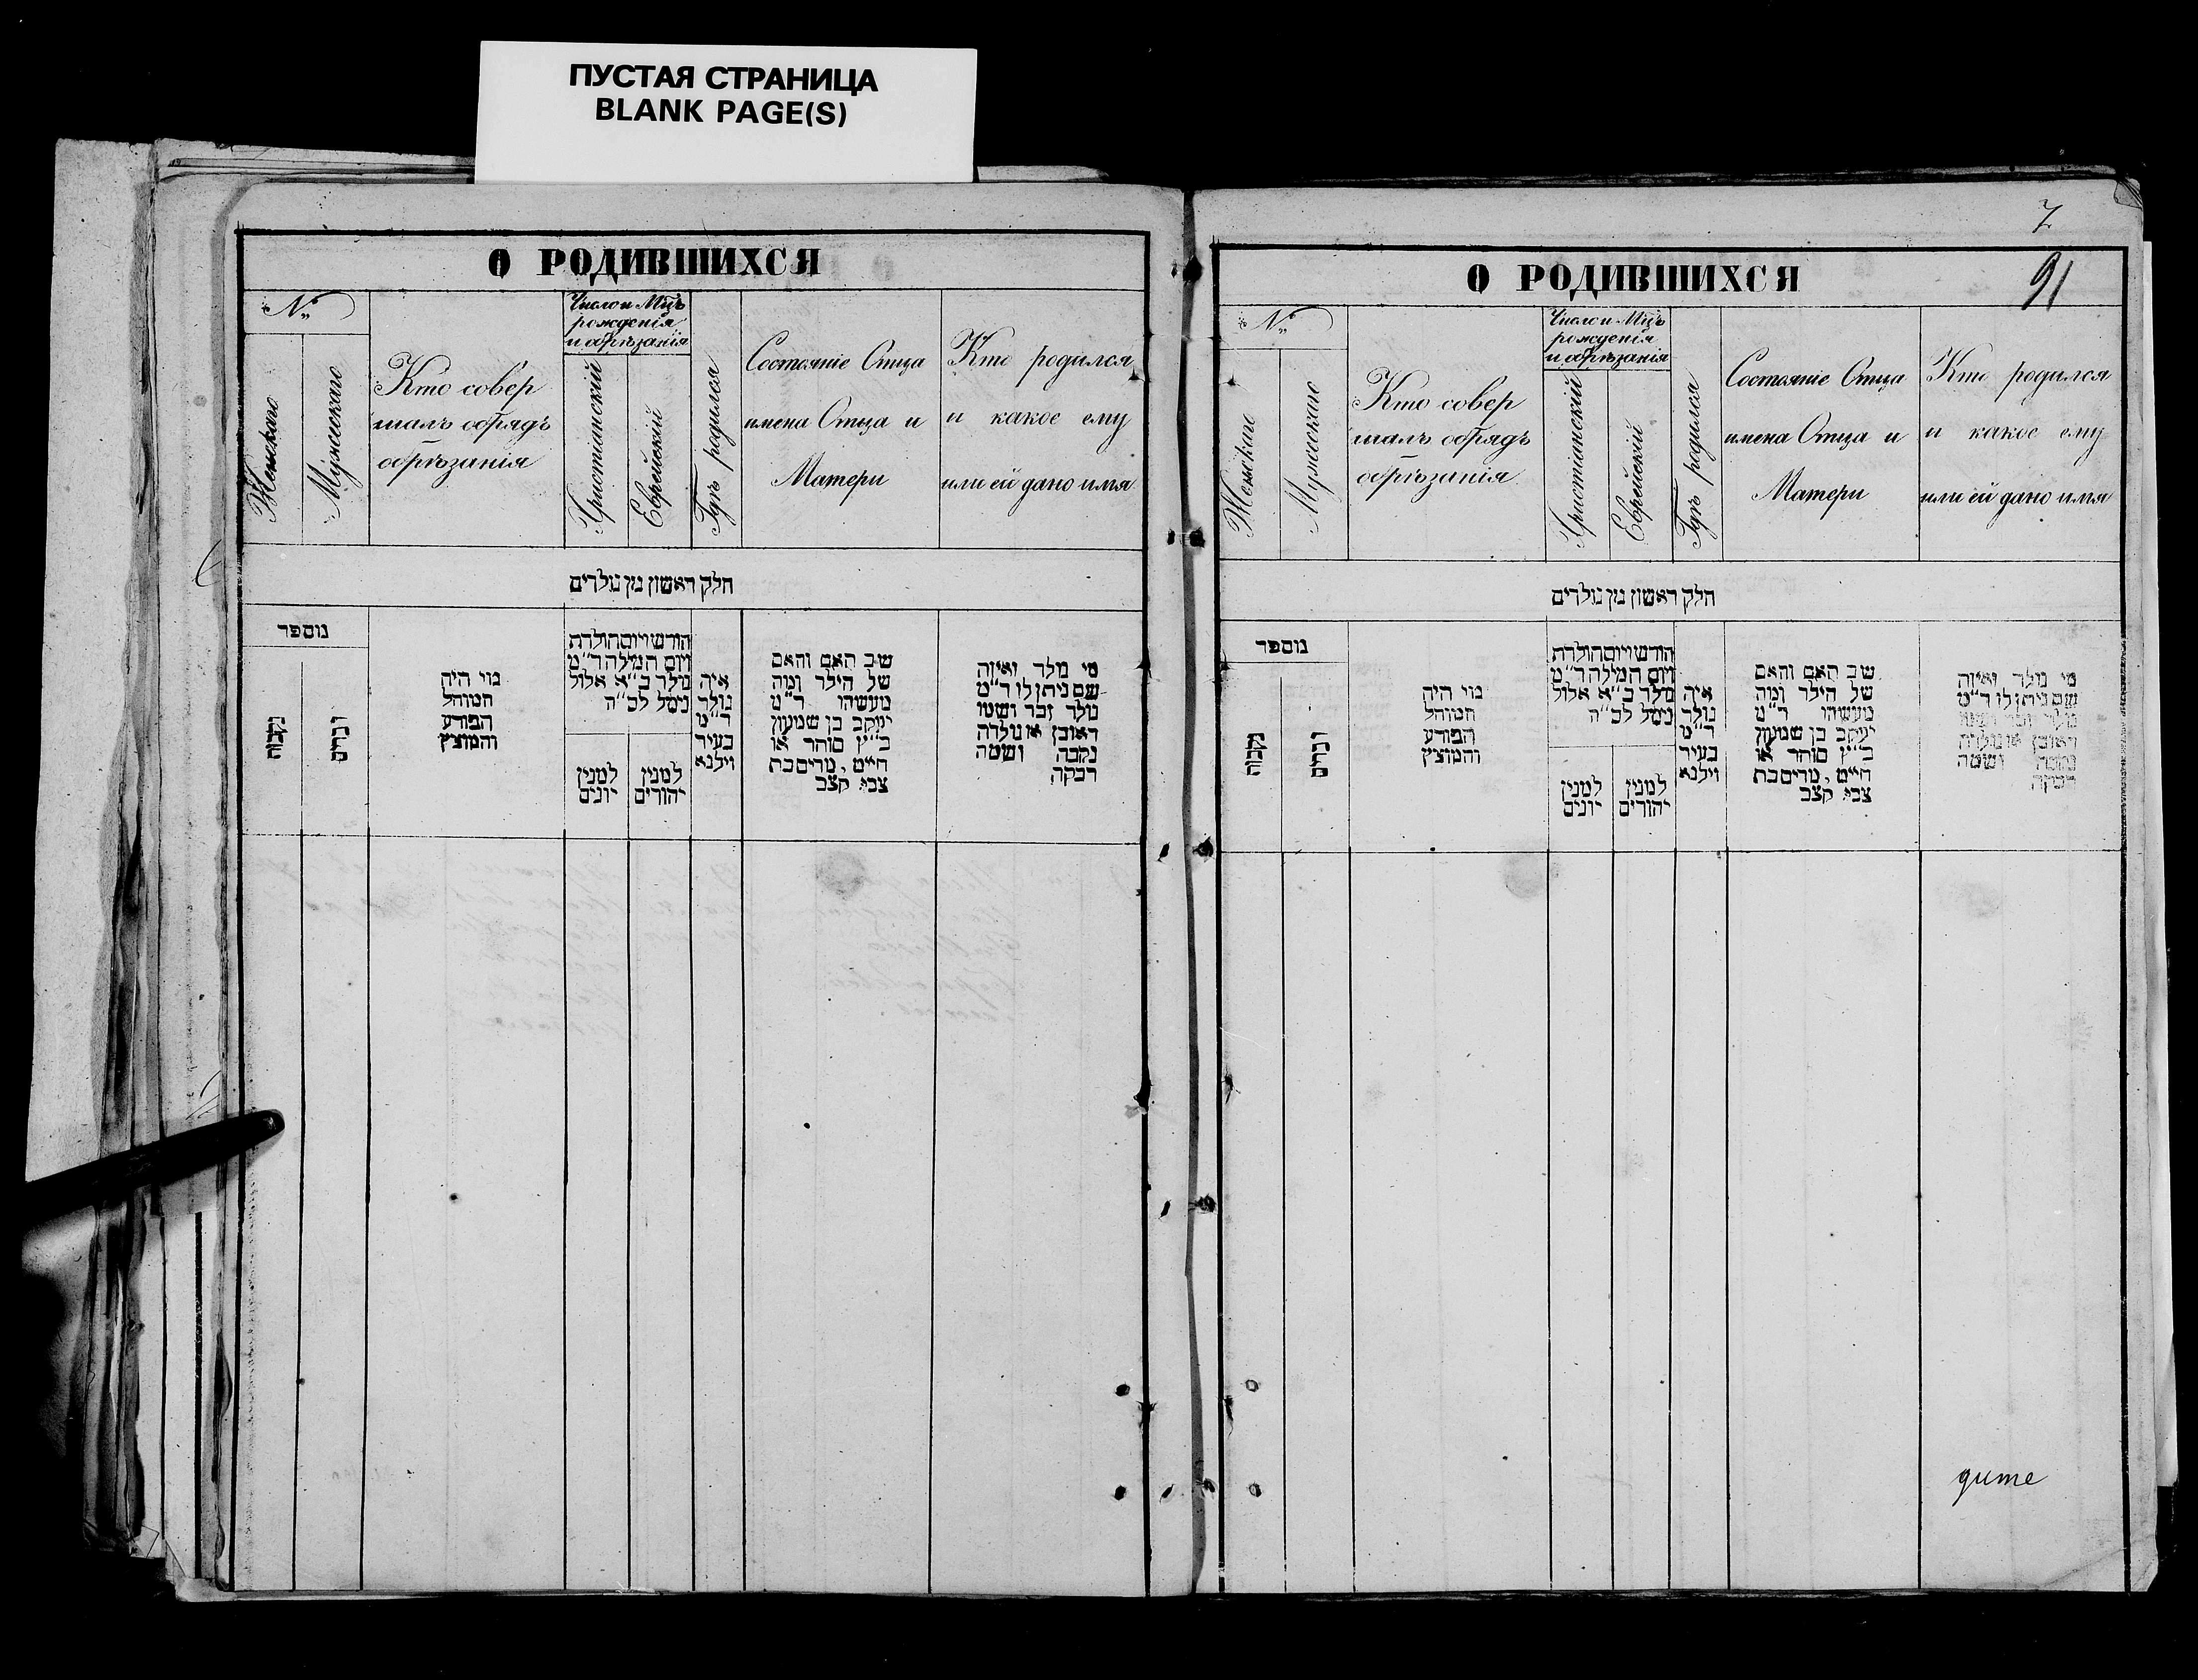 ПУСТАЯ СТРАНИЦА
BLANK PAGE(S)
О РОДИВШИХСЯ
№
Женскаго
Мужескаго
Кто совер
шалъ обрядъ
обрѣзанія
Число и Мцъ
рожденія
и обрѣзанія
Христіанскій
Еврейскій
Гдѣ родился
Состояніе Отца
имена Отца и
Матери
Кто родился
и какое ему
или ей дано имя
חלק ראשון מן נולדים
מספר
נקבות
זכרים
מי היה
המוהל
הפורע
והמוצץ
חודש ויום הולדת
ויום המילה ד"מ
נולד כ"א אלול
נימל לכ"ה
למנין
יונים
למנין
יהודים
איה
נולד
ד"מ
בעיר
ווילנא
שב האם והאם
של הילד ומה
מעשהו ד"מ
יעקב בן שמעון
כ"ץ סוחר או
חייט, מרים בת
צבי קצב
מי נולד ואיזה
שם ניתן לו ד"מ
נולד זכר ושמו
ראובן או נולדה
נקבה ושמה
רבקה
7
О РОДИВШИХСЯ
91
№
Женскаго
Мужескаго
Кто совер
шалъ обрядъ
обрѣзанія
Число и Мцъ
рожденія
и обрѣзанія
Христіанскій
Еврейскій
Гдѣ родился
Состояніе Отца
имена Отца и
Матери
Кто родился
и какое ему
или ей дано имя
חלק ראשון מן נולדים
מספר
נקבות
זכרים
מי היה
המוהל
הפורע
והמוצץ
חודש ויום הולדת
ויום המילה ד"מ
נולד כ"א אלול
נימל לכ"ה
למנין
יונים
למנין
יהודים
איה
נולד
ד"מ
בעיר
ווילנא
שב האם והאם
של הילד ומה
מעשהו ד"מ
יעקב בן שמעון
כ"ץ סוחר או
חייט, מרים בת
צבי קצב
מי נולד ואיזה
שם ניתן לו ד"מ
נולד זכר ושמו
ראובן או נולדה
נקבה ושמה
רבקה
дите